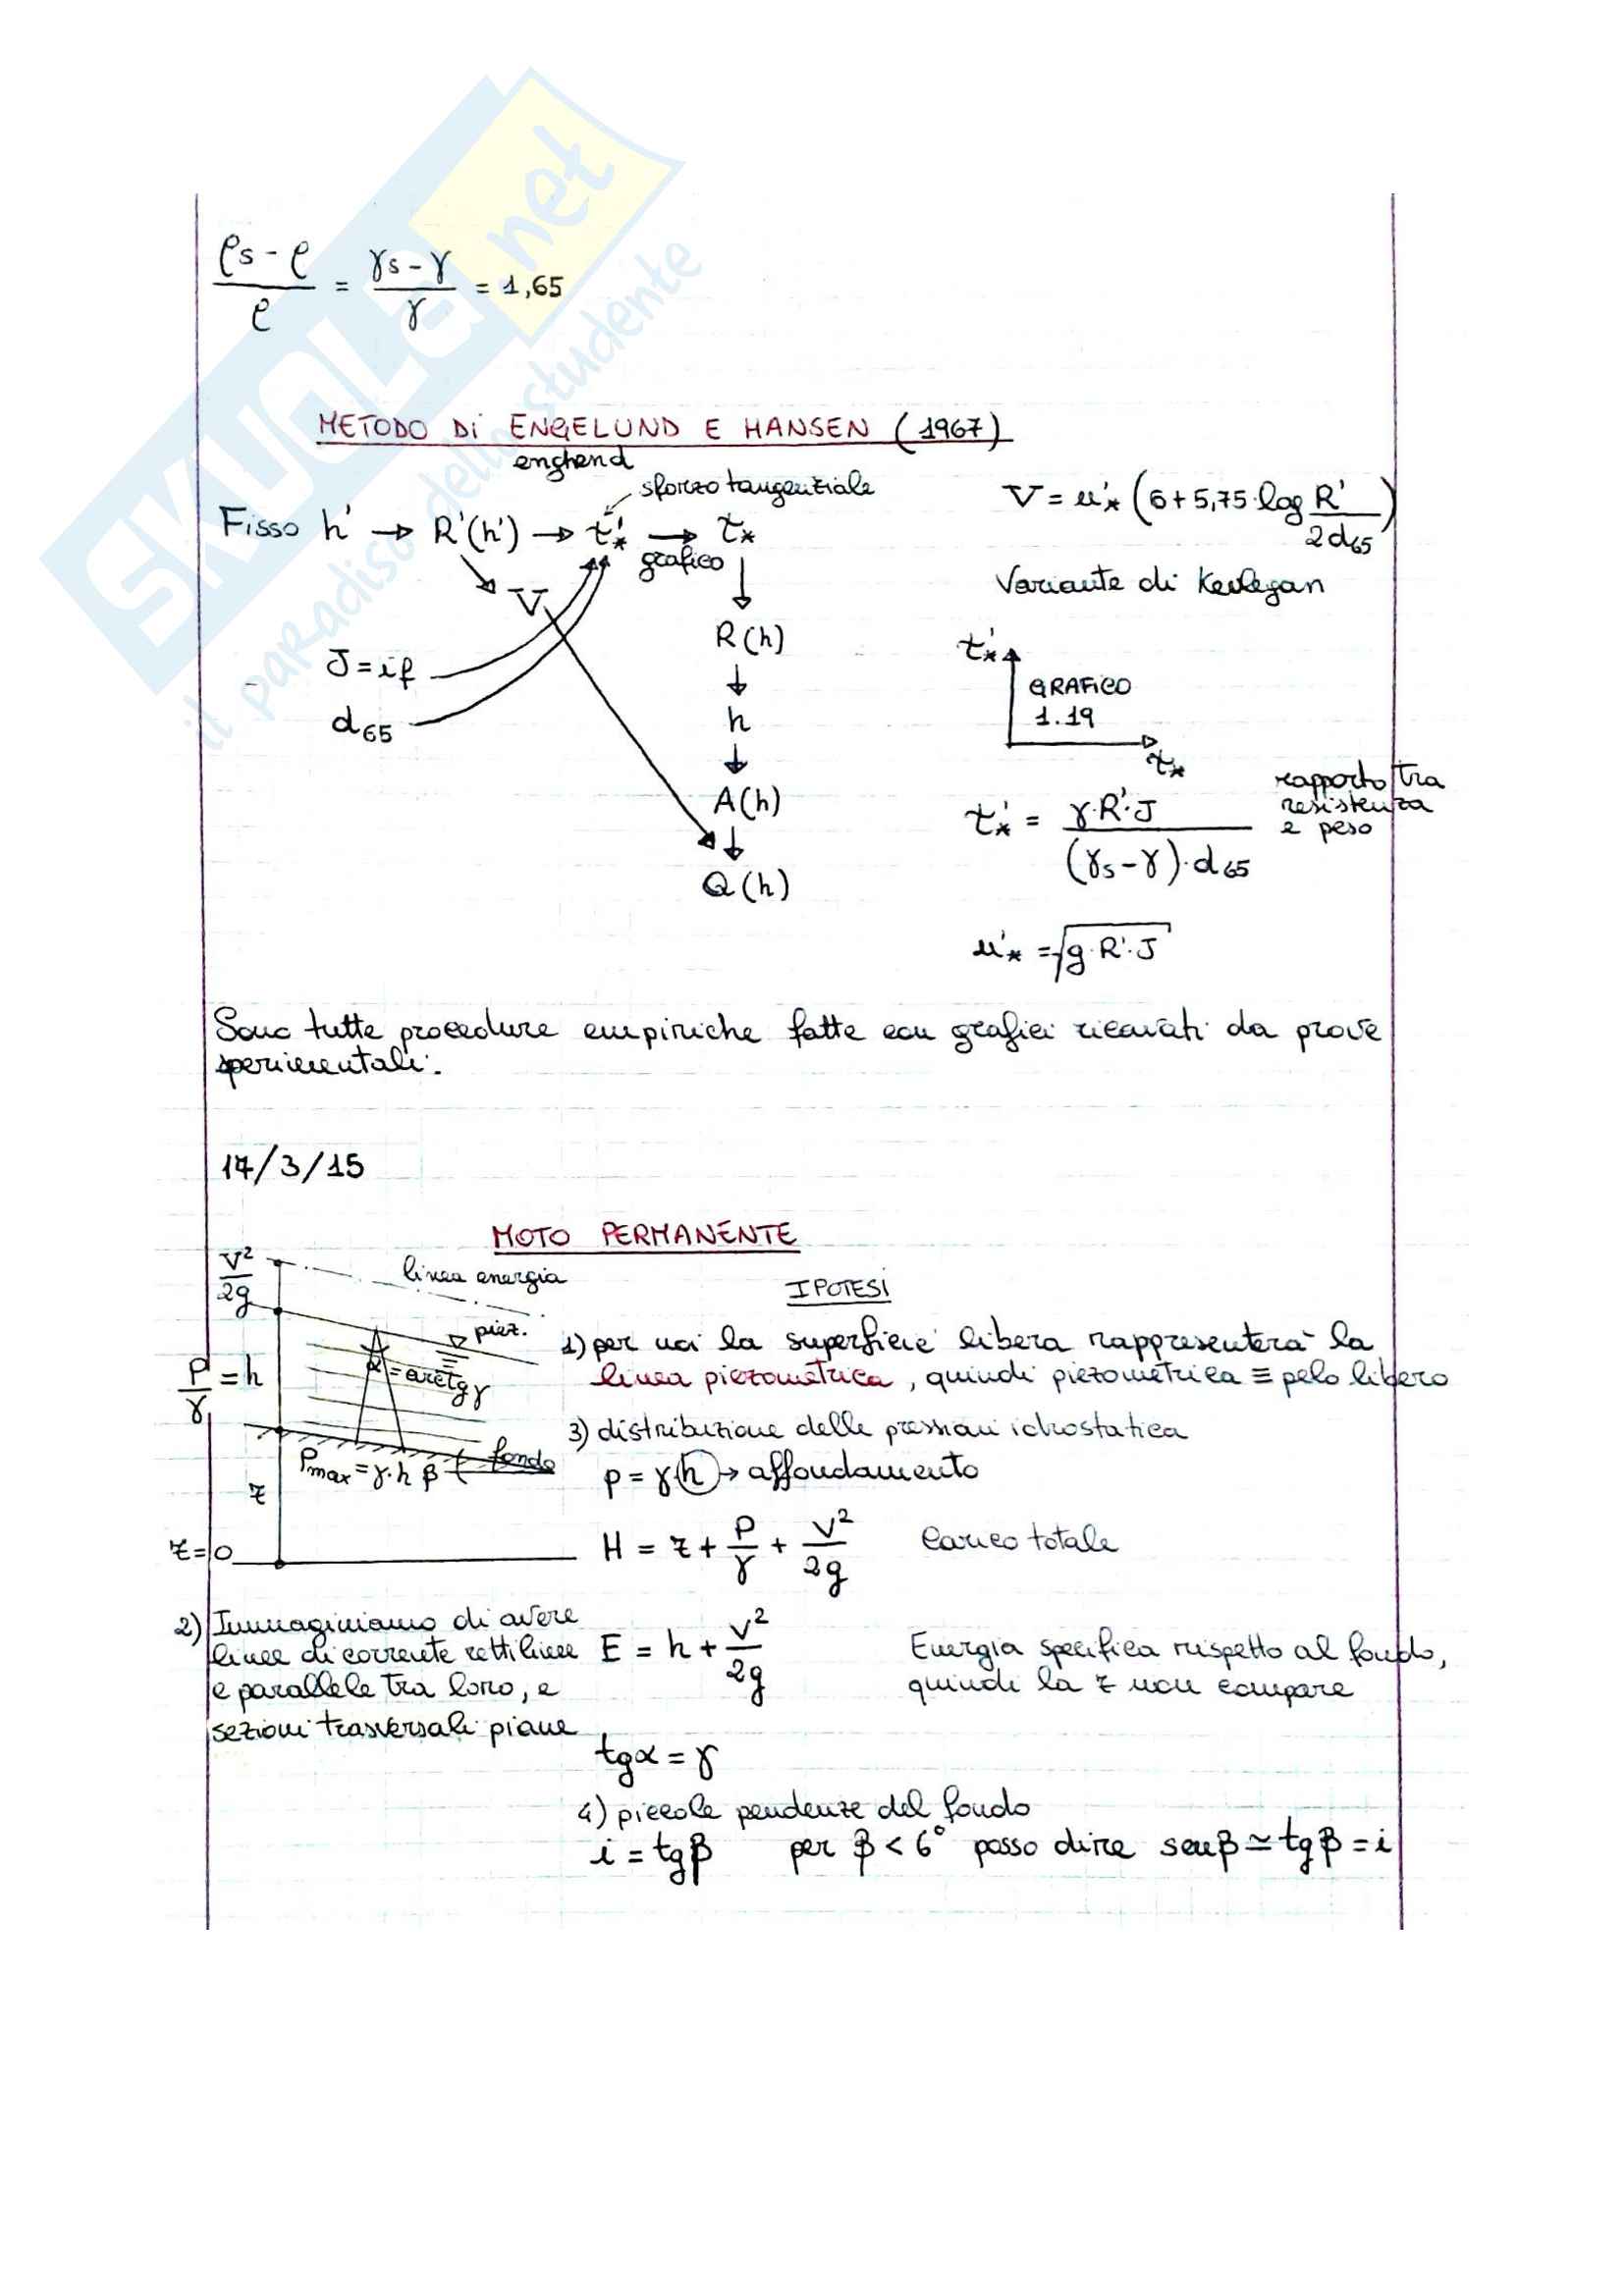 SKUOLA.net
il paradiso dello studente
ρs - ρ / ρ = γs - γ / γ = 1,65
METODO Di ENGELUND E HANSEN (1967)
enghend
sforzo tangenziale
Fisso h' → R'(h') → τ'* → τ*
grafico
V
J = if
d65
R(h)
↓
h
↓
A(h)
↓
Q(h)
V = u'* (6 + 5,75·log R' / 2d65)
Variante di Keulegan
τ'*
GRAFICO
1.19
τ*
τ'* = γ·R'·J / (γs - γ)·d65
rapporto tra
resistenza
e peso
u'* = √g·R'·J
Sono tutte procedure empiriche fatte con grafici ricavati da prove
sperimentali.
17/3/15
MOTO PERMANENTE
V²/2g
linea energia
piez.
P/γ = h
α = arctg γ
Pmax = γ·h β
fondo
z
z=0
IPOTESI
1) per noi la superficie libera rappresenterà la
linea piezometrica, quindi piezometrica ≡ pelo libero
3) distribuzione delle pressioni idrostatica
p = γ·h → affondamento
H = z + P/γ + V²/2g Carico totale
2) Immaginiamo di avere
linee di corrente rettilinee
e parallele tra loro, e
sezioni trasversali piane
E = h + V²/2g
Energia specifica rispetto al fondo,
quindi la z non compare
tgα = γ
4) piccole pendenze del fondo
i = tgβ per β < 6° posso dire senβ ≃ tgβ = i